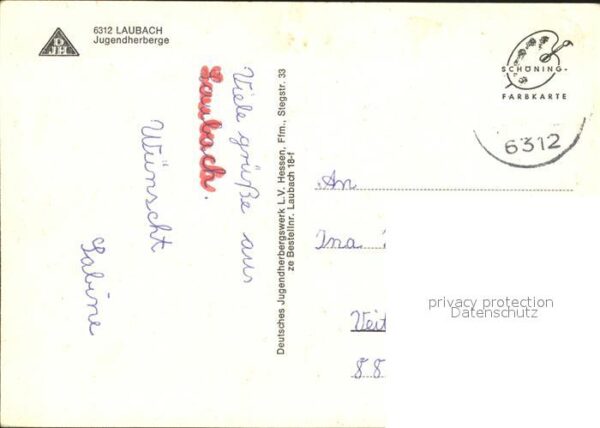 DJH
6312 LAUBACH
Jugendherberge
Viele grüße aus
Laubach.
Wünscht
Sabine
Deutsches Jugendherbergswerk L.V. Hessen, Ffm., Stegstr. 33
ze Bestellnr. Laubach 18-f
SCHÖNING-
FARBKARTE
6312
An
Ina
Veit
88
privacy protection
Datenschutz